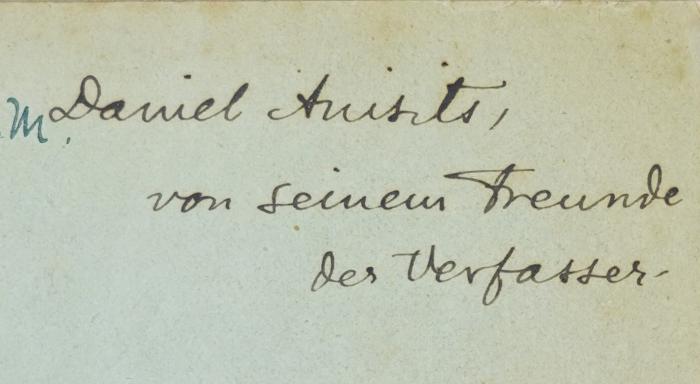 M. Daniel Anisits,
von seinem Freunde
der Verfasser.